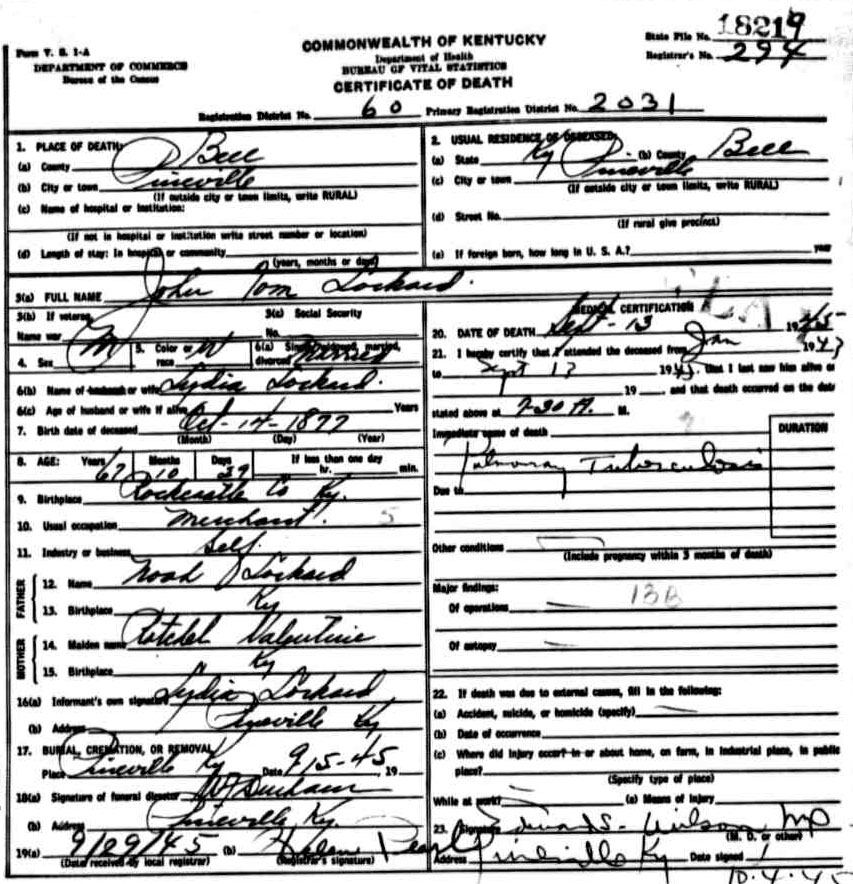 18219
State File No.
Form V. S. 1-A
COMMONWEALTH OF KENTUCKY
Registrar's No. 294
DEPARTMENT OF COMMERCE
Department of Health
Bureau of the Census
BUREAU OF VITAL STATISTICS
CERTIFICATE OF DEATH
Registration District No. 60 Primary Registration District No. 2031
1. PLACE OF DEATH:
(a) County Bell
(b) City or town Pineville
(If outside city or town limits, write RURAL)
(c) Name of hospital or institution:
(If not in hospital or institution write street number or location)
(d) Length of stay: In hospital or community
(years, months or days)
2. USUAL RESIDENCE OF DECEASED:
(a) State Ky (b) County Bell
(c) City or town Pineville
(If outside city or town limits, write RURAL)
(d) Street No.
(If rural give precinct)
(e) If foreign born, how long in U. S. A.? year
3(a) FULL NAME John Tom Lockard
3(b) If veteran, 3(c) Social Security
Name war No.
4. Sex M 5. Color or race W 6(a) Single, widowed, married, divorced Married
6(b) Name of husband or wife Lydia Lockard
6(c) Age of husband or wife if alive Years
7. Birth date of deceased Oct-14-1877
(Month) (Day) (Year)
8. AGE: Years 67 Months 10 Days 29 If less than one day
hr. min.
9. Birthplace Rockcastle Co Ky.
10. Usual occupation Merchant. 5
11. Industry or business Self
FATHER
12. Name Noah J Lockard
13. Birthplace Ky
MOTHER
14. Maiden name Ratchel Valentine
15. Birthplace Ky
16(a) Informant's own signature Lydia Lockard
(b) Address Pineville Ky
17. BURIAL, CREMATION, OR REMOVAL
Place Pineville Ky Date 9/15-45, 19
18(a) Signature of funeral director Durham
(b) Address Pineville Ky.
19(a) 9/29/45 (b) Helen Pearl
(Date received by local registrar) (Registrar's signature)
MEDICAL CERTIFICATION
20. DATE OF DEATH Sept-13 1945
21. I hereby certify that I attended the deceased from Jan 1943
to Sept 13 1945, that I last saw him alive on
19 and that death occurred on the date
stated above at 7-30 A. M.
Immediate cause of death DURATION
Pulmonary Tuberculosis
Due to
Other conditions
(Include pregnancy within 3 months of death)
Major findings: 13B
Of operations
Of autopsy
22. If death was due to external causes, fill in the following:
(a) Accident, suicide, or homicide (specify)
(b) Date of occurrence
(c) Where did injury occur? In or about home, on farm, in industrial place, in public
place?
(Specify type of place)
While at work? (e) Means of Injury
23. Signature Edward S. Wilson MD
(M. D. or other)
Address Pineville Ky Date signed
10.4.45